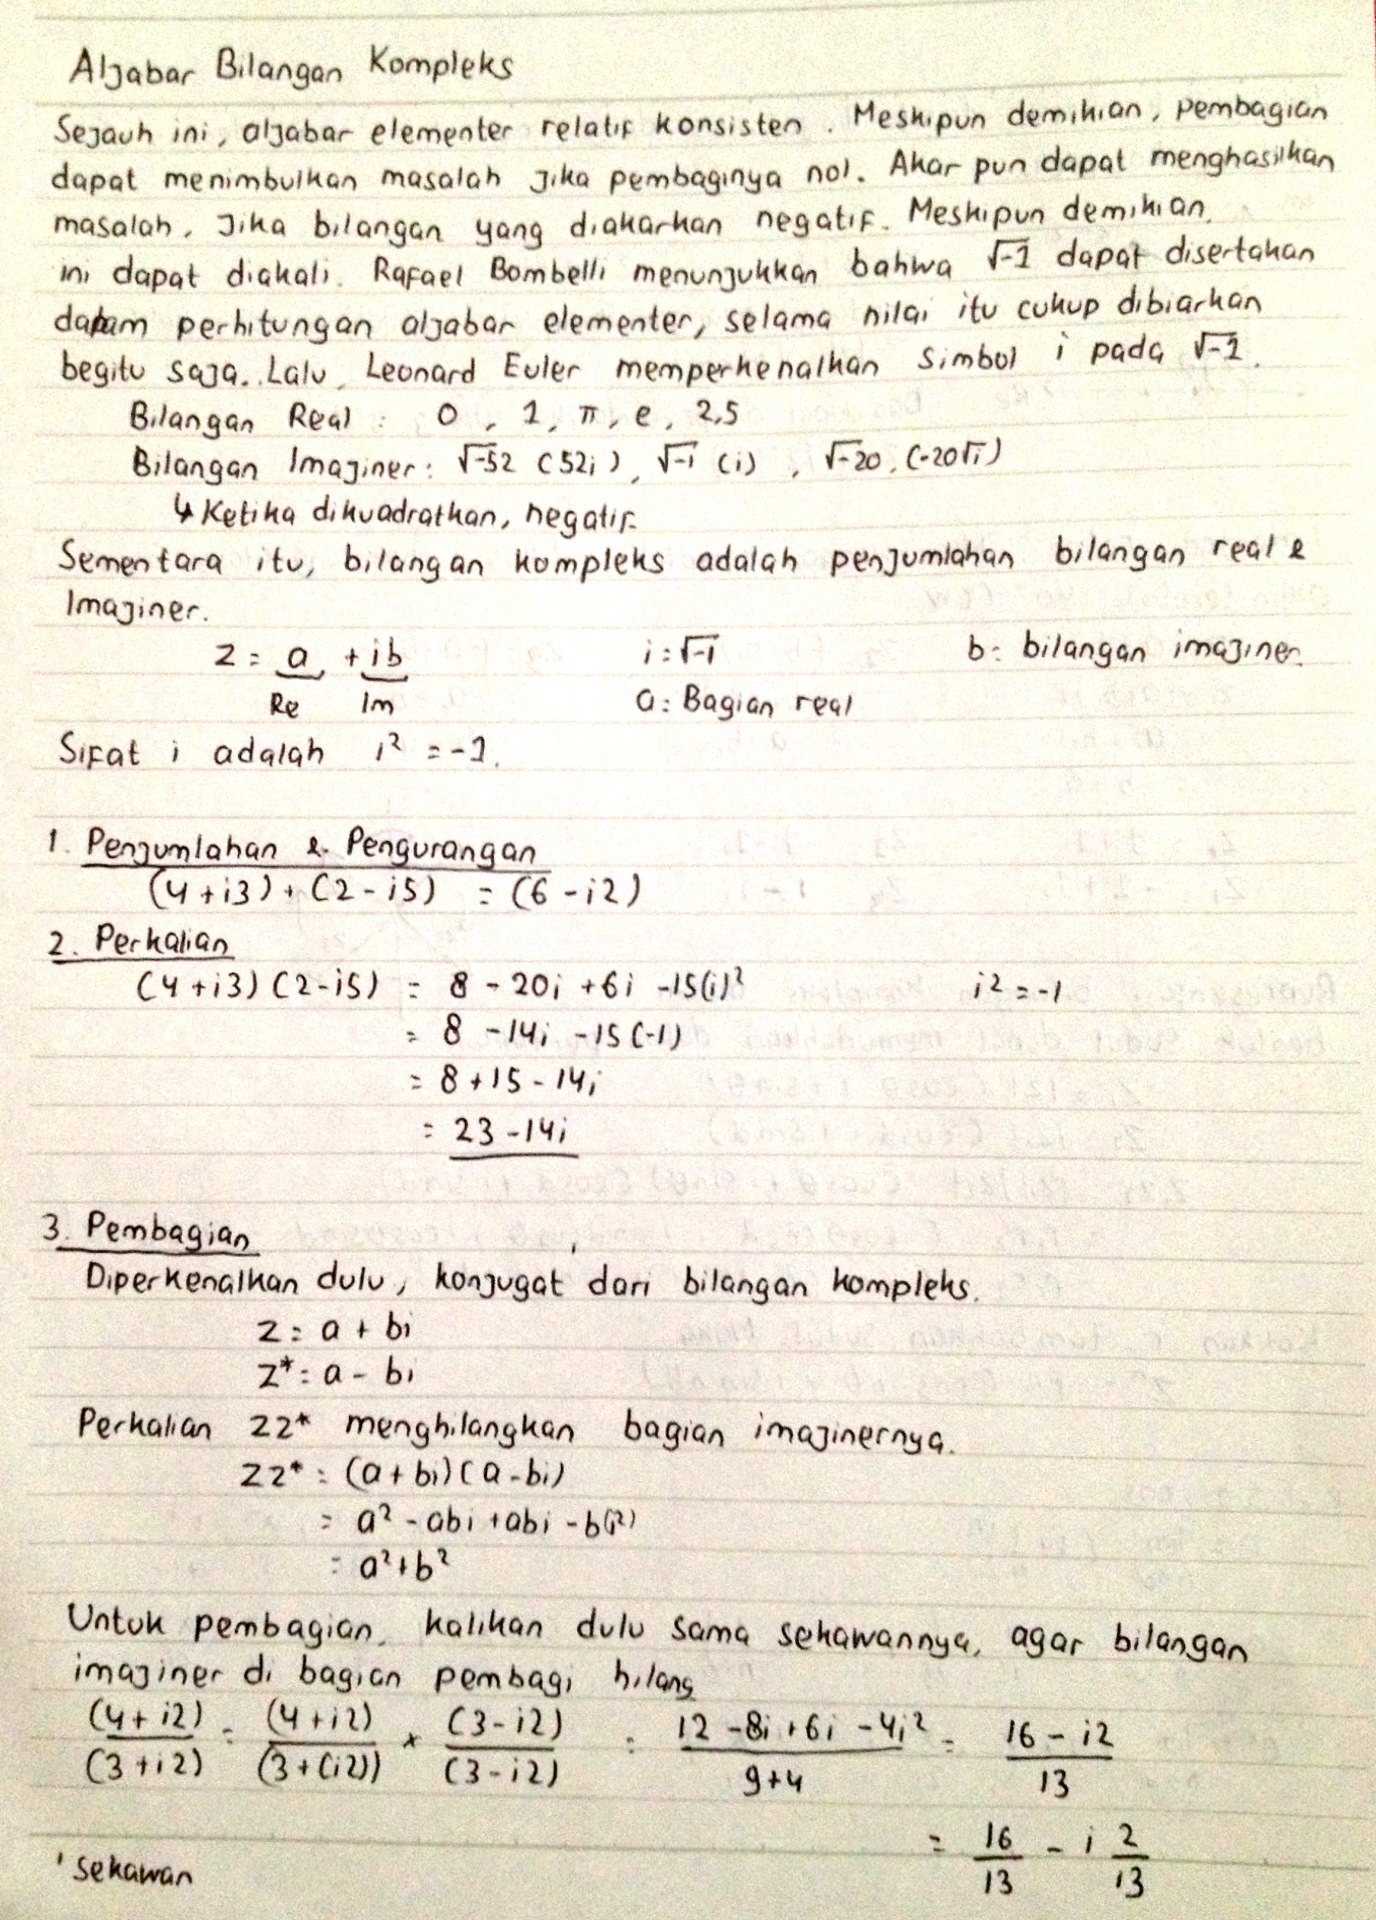 Aljabar Bilangan Kompleks
Sejauh ini, aljabar elementer relatif konsisten. Meskipun demikian, pembagian
dapat menimbulkan masalah jika pembaginya nol. Akar pun dapat menghasilkan
masalah, Jika bilangan yang diakarkan negatif. Meskipun demikian,
ini dapat diakali. Rafael Bombelli menunjukkan bahwa √-1 dapat disertakan
dalam perhitungan aljabar elementer, selama nilai itu cukup dibiarkan
begitu saja. Lalu, Leonard Euler memperkenalkan simbol i pada √-1.
Bilangan Real : 0, 1, π, e, 2,5
Bilangan Imajiner: √-52 (52i), √-1 (i), √-20, (-20√i)
↳ Ketika dikuadratkan, negatif.
Sementara itu, bilangan kompleks adalah penjumlahan bilangan real &
Imajiner.
z = a + ib i = √-1 b: bilangan imajiner.
Re Im a: Bagian real
Sifat i adalah i² = -1.
1. Penjumlahan & Pengurangan
(4+i3) + (2-i5) = (6-i2)
2. Perkalian
(4+i3)(2-i5) = 8 - 20i + 6i - 15(i)² i² = -1
= 8 - 14i - 15(-1)
= 8 + 15 - 14i
= 23 - 14i
3. Pembagian
Diperkenalkan dulu, konjugat' dari bilangan kompleks.
z = a + bi
z* = a - bi
Perkalian zz* menghilangkan bagian imajinernya.
zz* = (a+bi)(a-bi)
= a² - abi + abi - b(i²)
= a² + b²
Untuk pembagian, kalikan dulu sama sekawannya, agar bilangan
imajiner di bagian pembagi hilang
(4+i2)/(3+i2) = (4+i2)/(3+(i2)) × (3-i2)/(3-i2) = (12 - 8i + 6i - 4i²)/(9+4) = (16 - i2)/13
= 16/13 - i 2/13
' sekawan